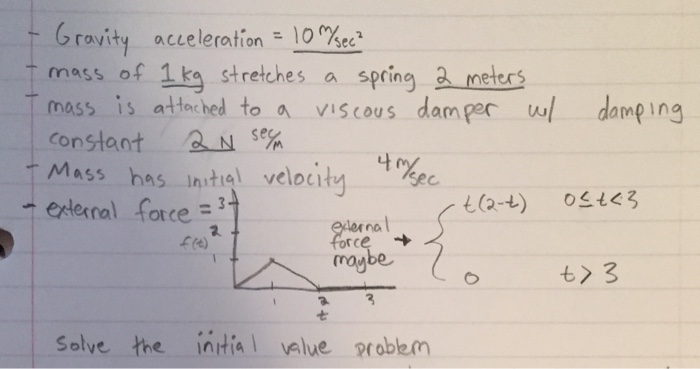 - Gravity acceleration = 10 m/sec²
- mass of 1 kg stretches a spring 2 meters
- mass is attached to a viscous damper w/ damping
constant 2 N sec/m
- Mass has initial velocity 4 m/sec
- external force = 3
f(t) 2
1
1 2 3
t
external
force →
maybe
{ t(2-t) 0≤t<3
0 t>3
Solve the initial value problem